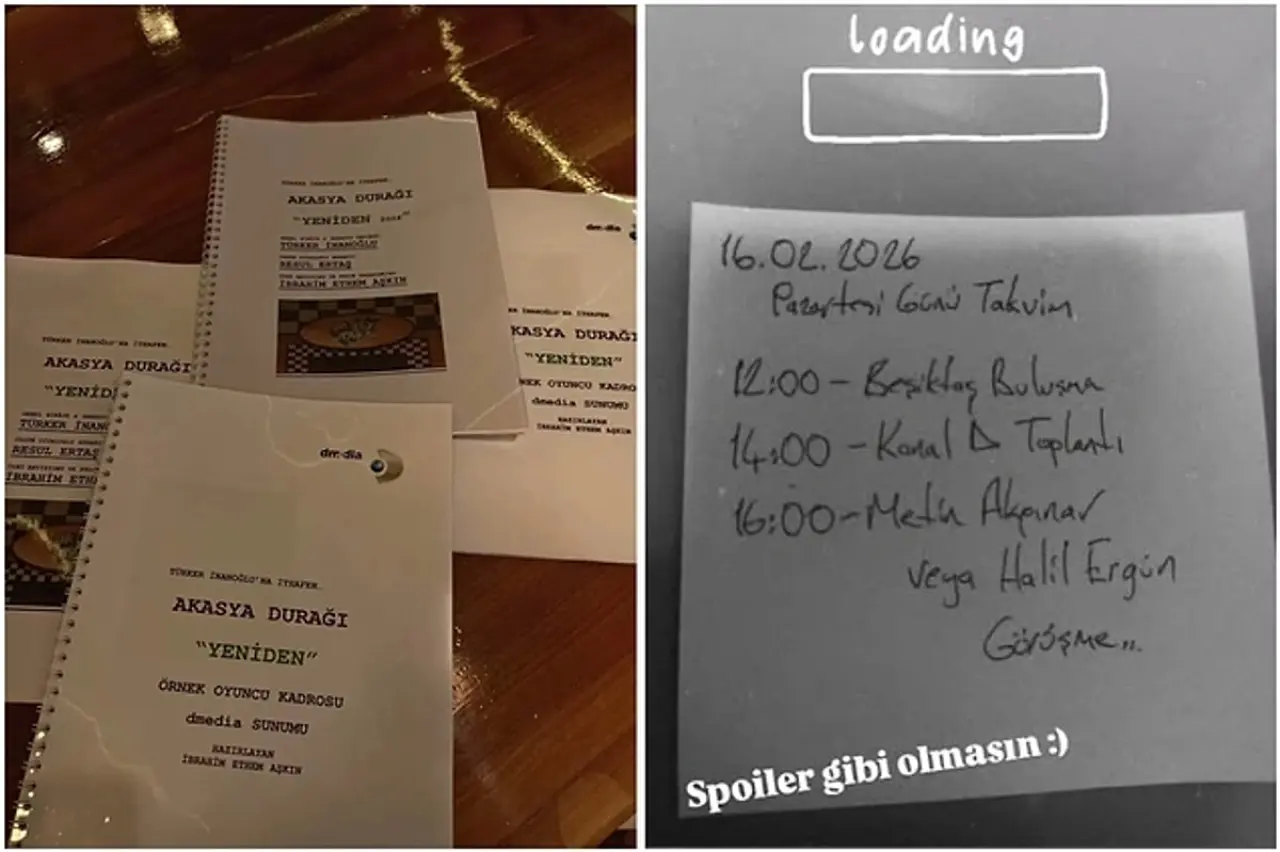 TÜRKER İNANOĞLU'NA İTHAFEN..
AKASYA DURAĞI
"YENİDEN
TÜRKER İNANOĞLU
RESUL ERTAŞ
İBRAHİM ETHEM AŞKIN
TÜRKER İNANOĞLU'NA İTHAFEN..
AKASYA DURAĞI
"YENİD
TÜRKER İNANO
RESUL ERTAŞ
İBRAHİM ETH
dmedia
NA İTHAFEN..
KASYA DURAĞI
"YENİDEN"
NEK OYUNCU KADRO
dmedia SUNUMU
HAZIRLAYAN
İBRAHİM ETHEM AŞKIN
dmedia
TÜRKER İNANOĞLU'NA İTHAFEN..
AKASYA DURAĞI
"YENİDEN"
ÖRNEK OYUNCU KADROSU
dmedia SUNUMU
HAZIRLAYAN
İBRAHİM ETHEM AŞKIN
loading
16.02.2026
Pazartesi Günü Takvim
12:00 - Beşiktaş Buluşma
14:00 - Kanal D Toplantı
16:00 - Metin Akpınar
veya Halil Ergün
Görüşme...
Spoiler gibi olmasın :)